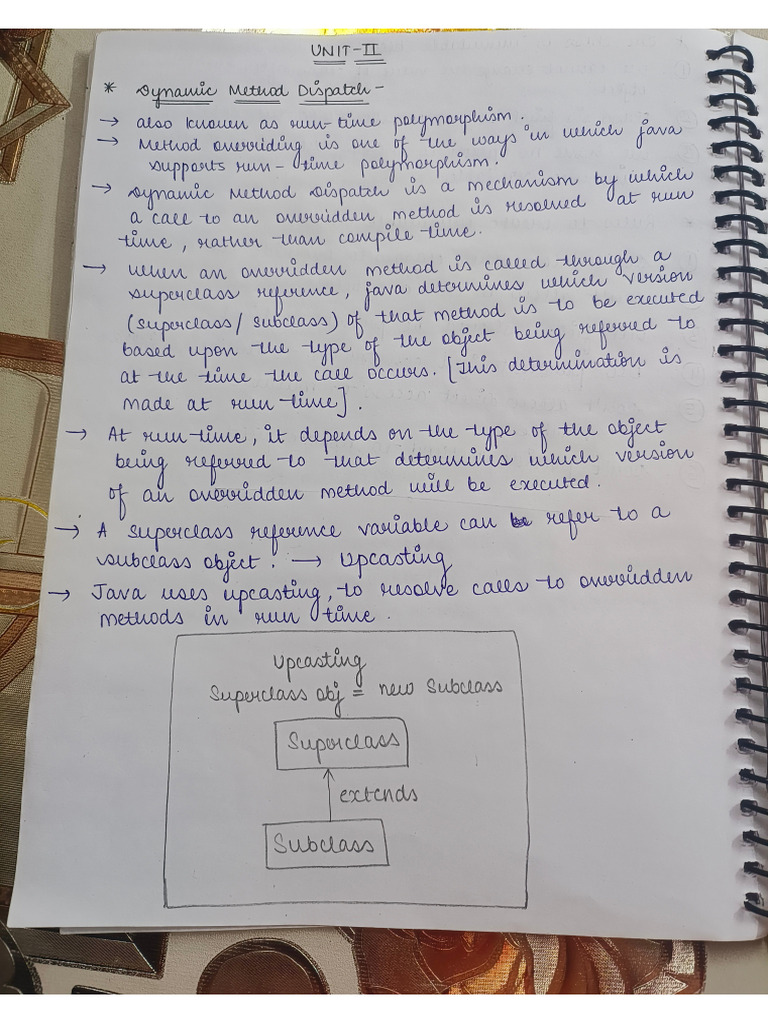 UNIT-II
* Dynamic Method Dispatch -
→ also known as run-time polymorphism.
→ Method overriding is one of the ways in which java
supports run-time polymorphism.
→ Dynamic Method Dispatch is a mechanism by which
a call to an overridden method is resolved at run
time, rather than compile time.
→ when an overridden method is called through a
superclass reference, java determines which version
(superclass/subclass) of that method is to be executed
based upon the type of the object being referred to
at the time the call occurs. [This determination is
made at run-time].
→ At run-time, it depends on the type of the object
being referred to that determines which version
of an overridden method will be executed.
→ A superclass reference variable can refer to a
subclass object. → Upcasting
→ Java uses upcasting, to resolve calls to overridden
methods in run time.
Upcasting
Superclass obj = new Subclass
Superclass
extends
Subclass